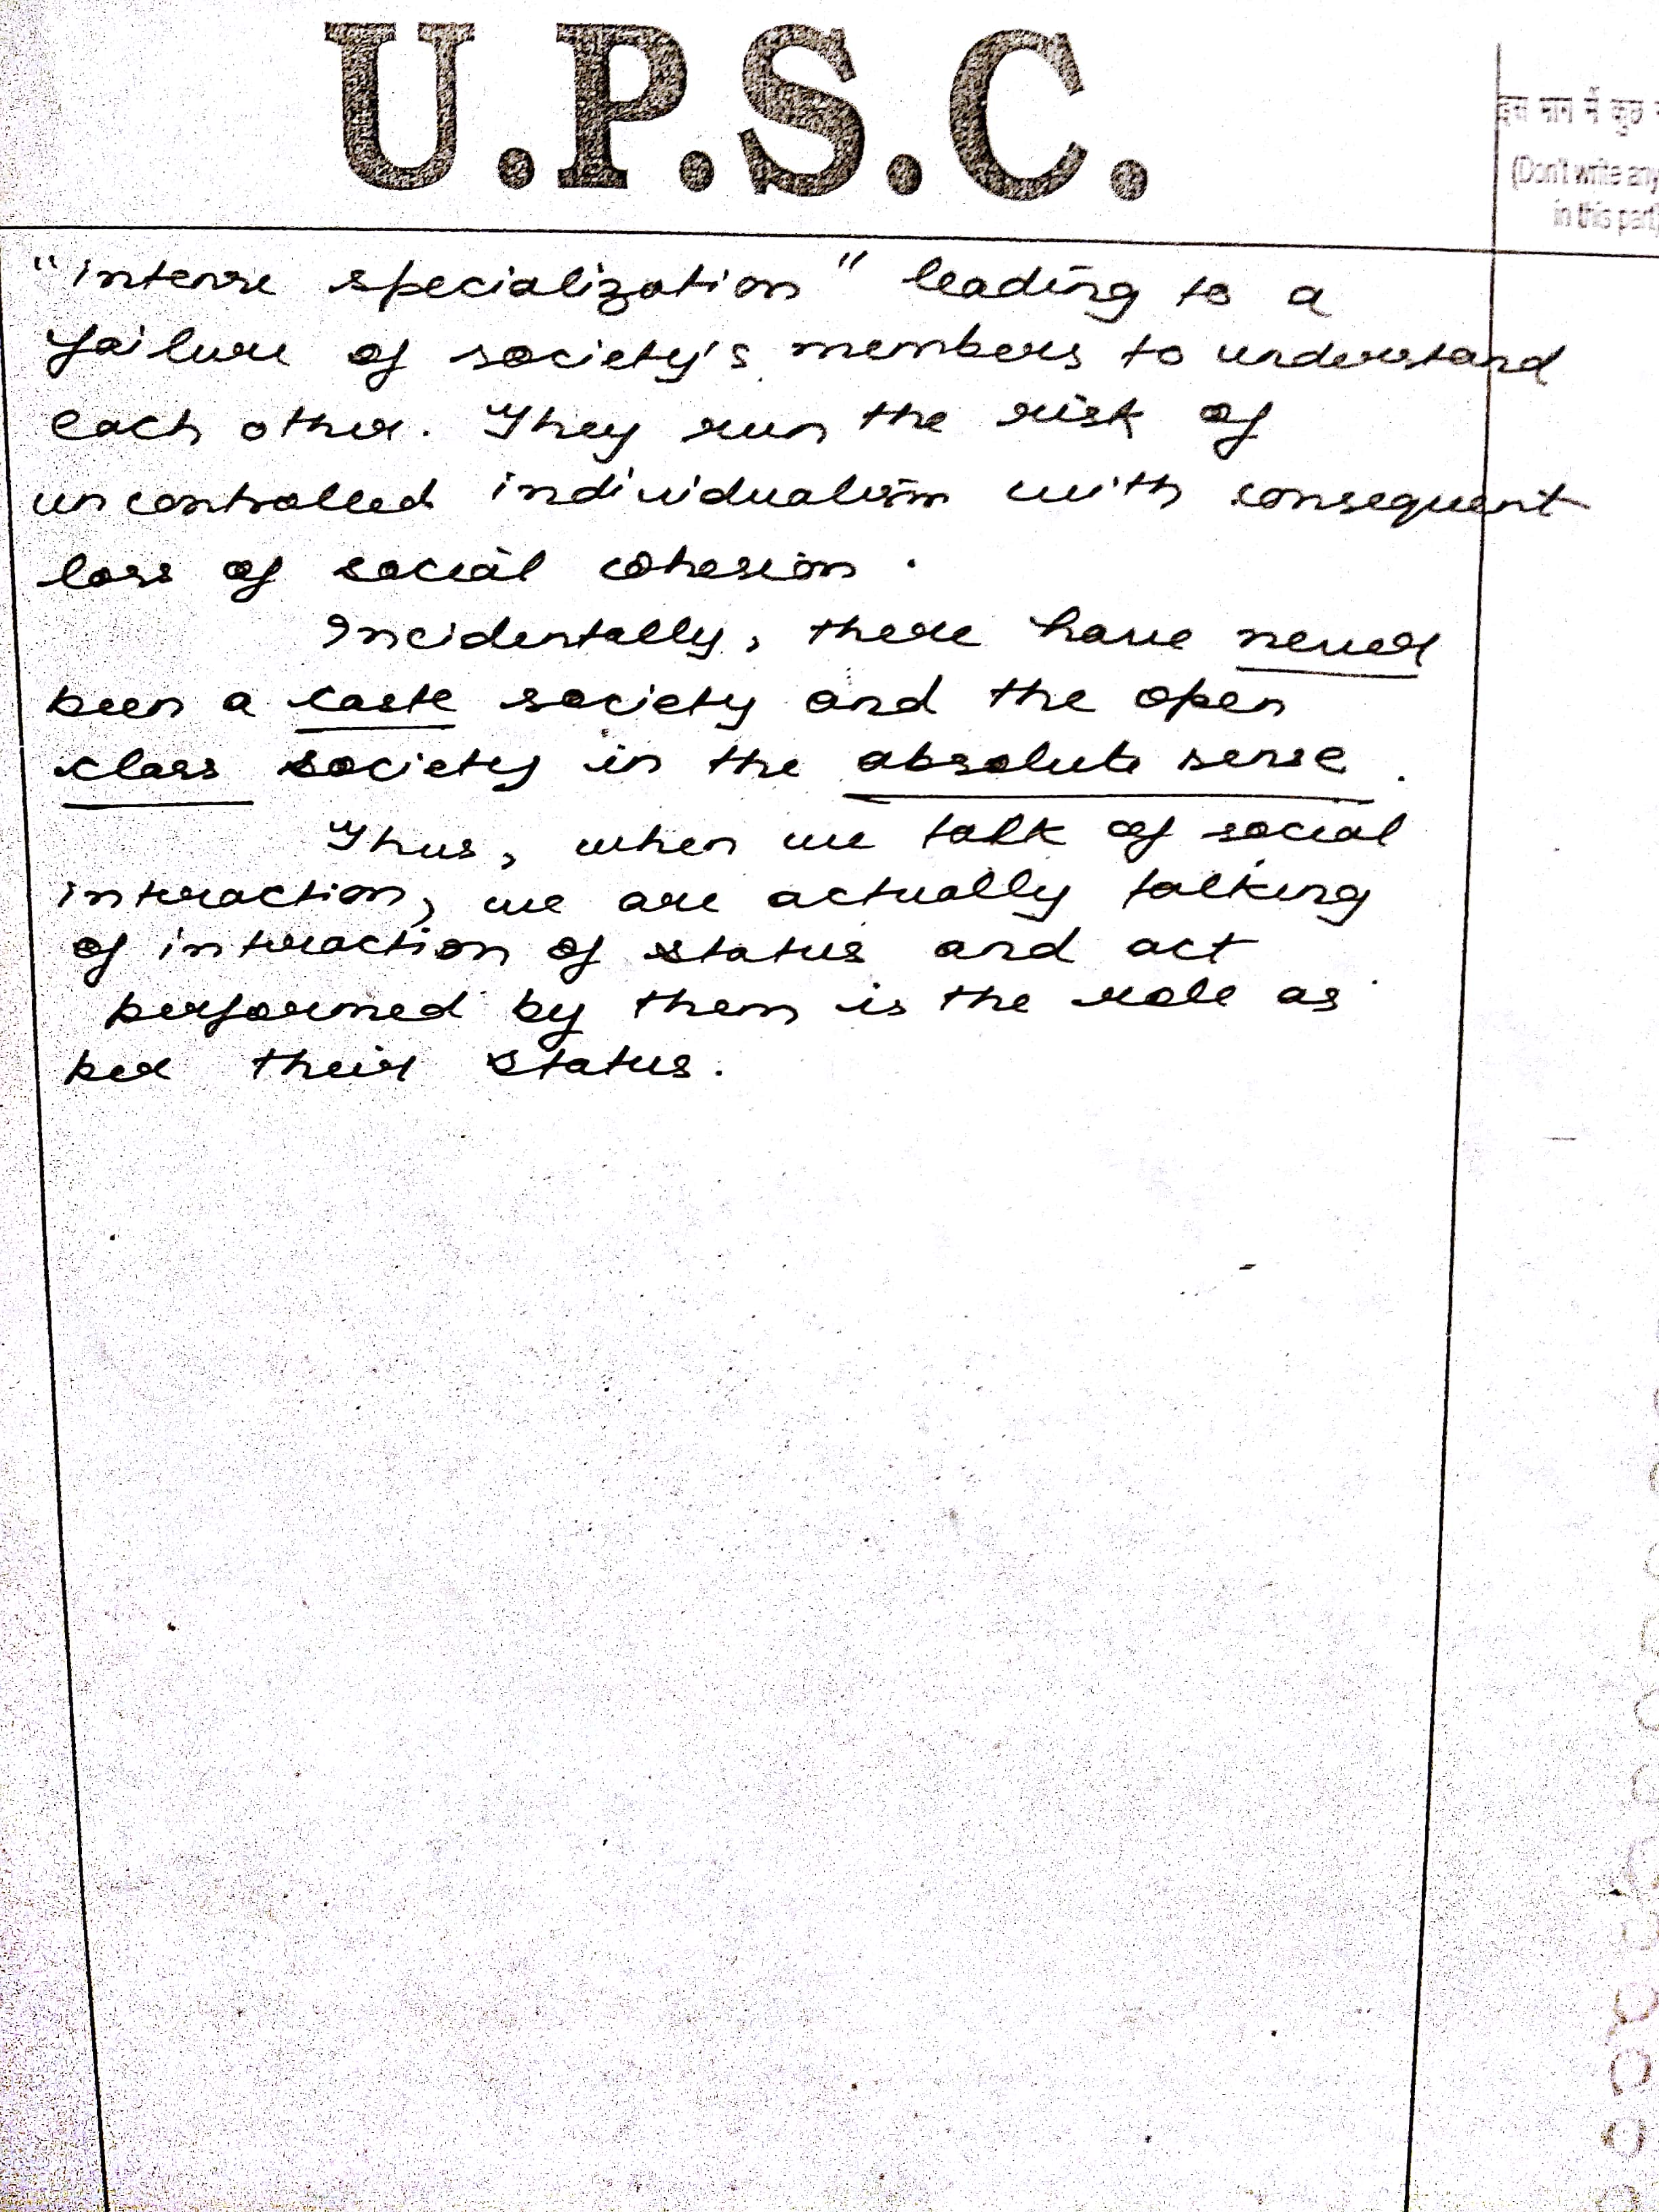 U.P.S.C.
इस भाग में कुछ
(Don't write any
in this part)
"intense specialization" leading to a
failure of society's members to understand
each other. They run the risk of
uncontrolled individualism with consequent
loss of social cohesion.
Incidentally, there have never
been a caste society and the open
class society in the absolute sense.
Thus, when we talk of social
interaction, we are actually talking
of interaction of status and act
performed by them is the role as
per their status.